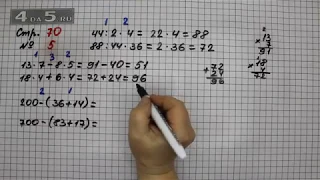 4А5RU
Стр. 70
№ 5
1 2
44:2·4=22·4=88
2 1
88:44·36=2·36=72
1 3 2
13·7-8·5=91-40=51
18·4+6·4=72+24=96
2 1
200-(36+14)=
700-(83+17)=
×13
7
91
×18
4
72
+72
24
96